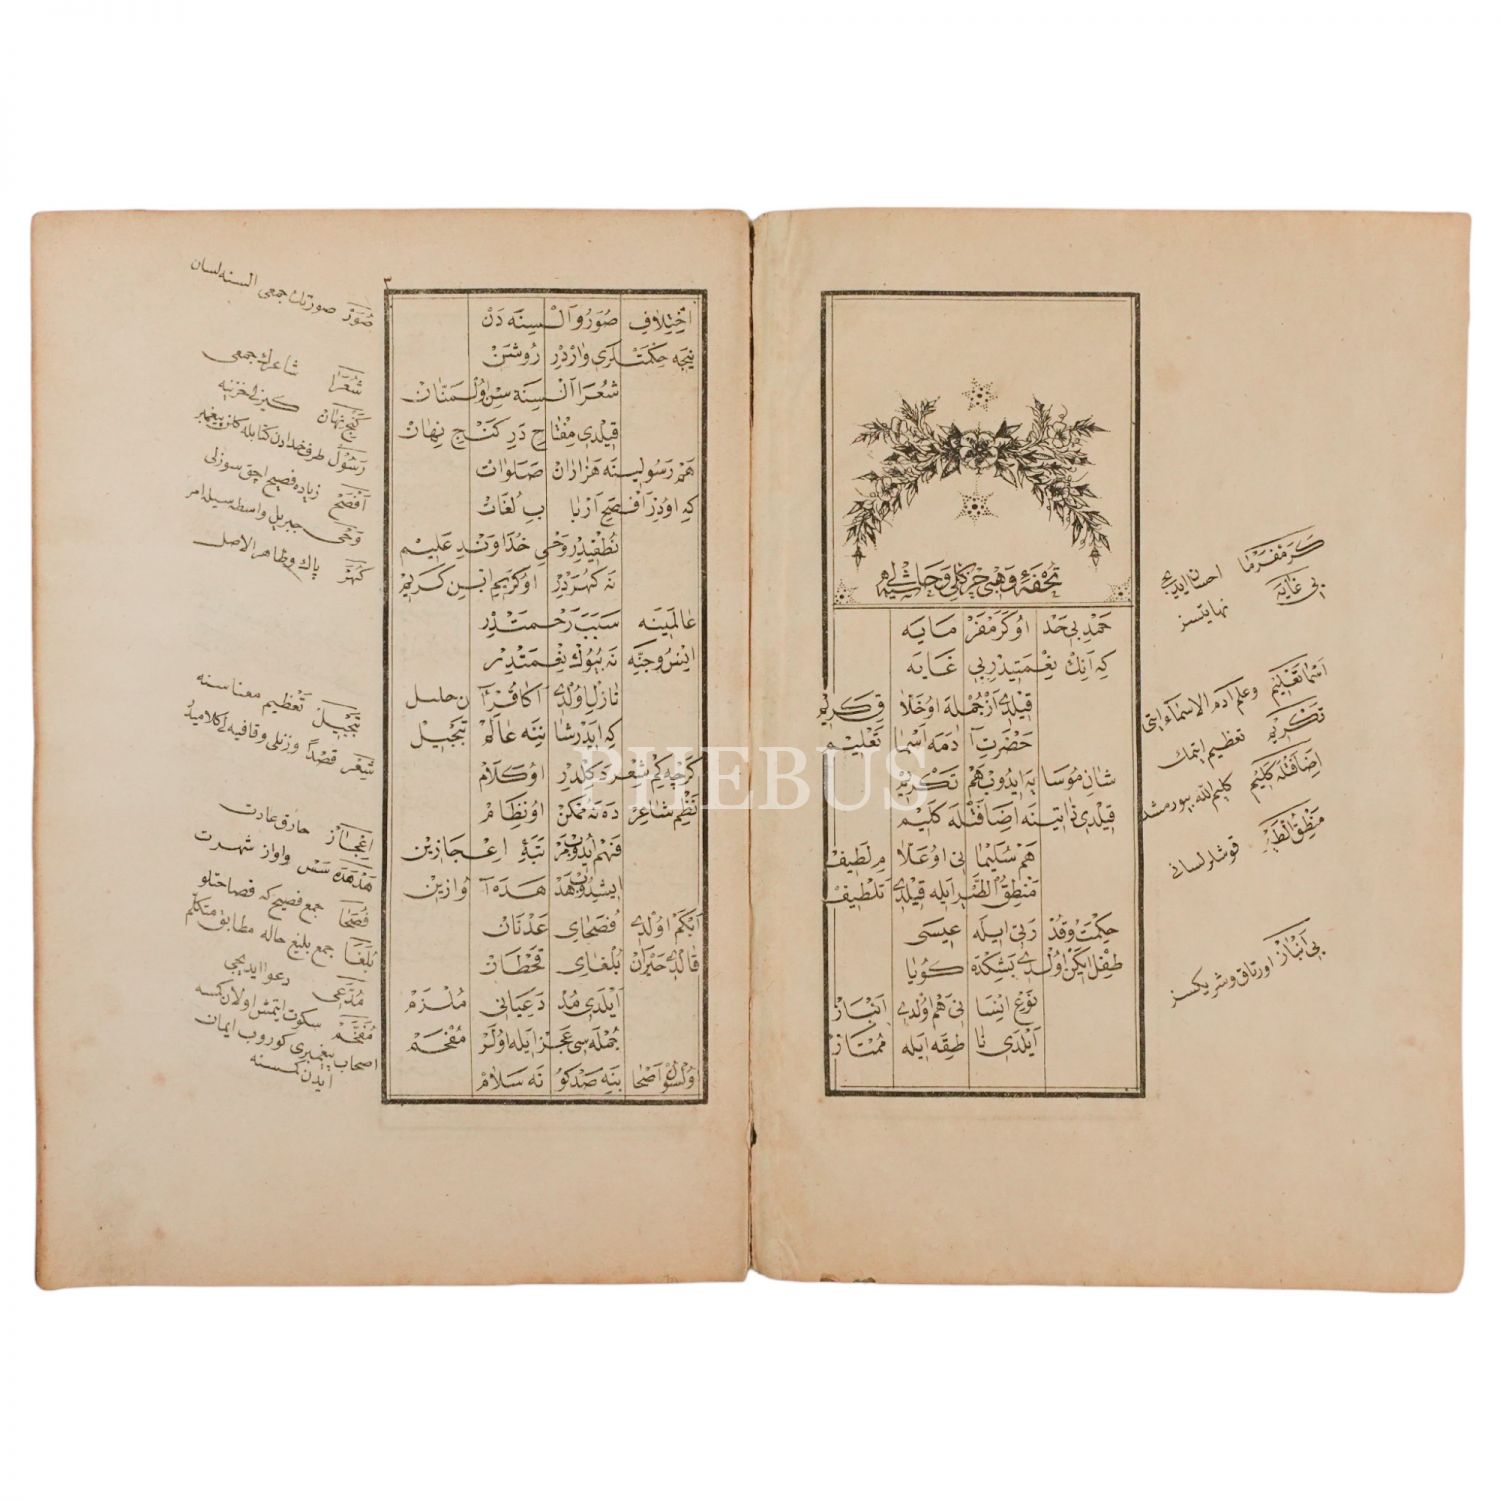 تحفهٔ وهبی حرکه‌لی و حاشیه‌لی
حمد بی حد او کرمفرمایه
که انك نعمتیدر بی غایه
قیلدی از جمله او خلاق کریم
حضرت آدمه اسما تعلیم
شان موسایه ایدوب هم تکریم
قیلدی ذاتینه اضافتله کلیم
هم سلیمانی او علام لطیف
منطق الطیر ایله قیلدی تلطیف
حکمت و قدرتی ایله عیسی
طفل ایکن اولدی بشکده کویا
نوع انسانی هم اولدی انباز
ایلدی ناطقه ایله ممتاز
کرمفرما احسان ایدیجی
بی غایه نهایتسز
اسما تعلیم وعلم ادم الاسماء ایتی
تکریم تعظیم ایتمك
اضافتله کلیم کلیم الله بیورمشدر
منطق الطیر قوشلر لسانی
بی انباز اورتاق و شریکسز
٣
اختلاف صور و آلسنه دن
نیجه حکمتلری واردر روشن
شعرا آلسنه سن اول منان
قیلدی مفتاح در کنج نهان
هم رسولینه هزاران صلوات
که اودر افصح ارباب لغات
نطقیدر وحی خداوند علیم
نه کهردر او کریم ابن کریم
عالمینه سبب رحمتدر
انس و جنه نه بیوك نعمتدر
نازل اولدی اکا قرآن جلیل
که ایدر شانینه عالم تبجیل
کرچه کم شعر دکلدر او کلام
نظم شاعرده نه ممکن او نظام
فهم ایدوب مرتبهٔ اعجازین
ایشیدوب هدهده آوازین
ابکم اولدی فصحای عدنان
قالدی حیران بلغای قحطان
ایلدی مدعیانی ملزم
جمله سی عجز ایله اولر مفحم
اولسون اصحابنه صد کونه سلام
صور صورتك جمعی السنه لسان
شعرا شاعرك جمعی
کنج نهان کیزلی خزینه
رسول طرف خدادن کتابله کلن پیغمبر
افصح زیاده فصیح اچق سوزلی
وحی جبریل واسطه سیله امر
کهر پاك و ظاهر الاصل
تبجیل تعظیم معناسنه
شعر قصدا وزنلی و قافیه لی کلامیدر
اعجاز خارق عادت
هدهده سس و اواز شهرت
فصحا جمع فصیح که فصاحتلو
بلغا جمع بلیغ حاله مطابق متکلم
مدعی دعوا ایدیجی
مفحم سکوت ایتمش اولان کمسه
اصحاب پیغمبری کوروب ایمان
ایدن کمسنه
PHEBUS